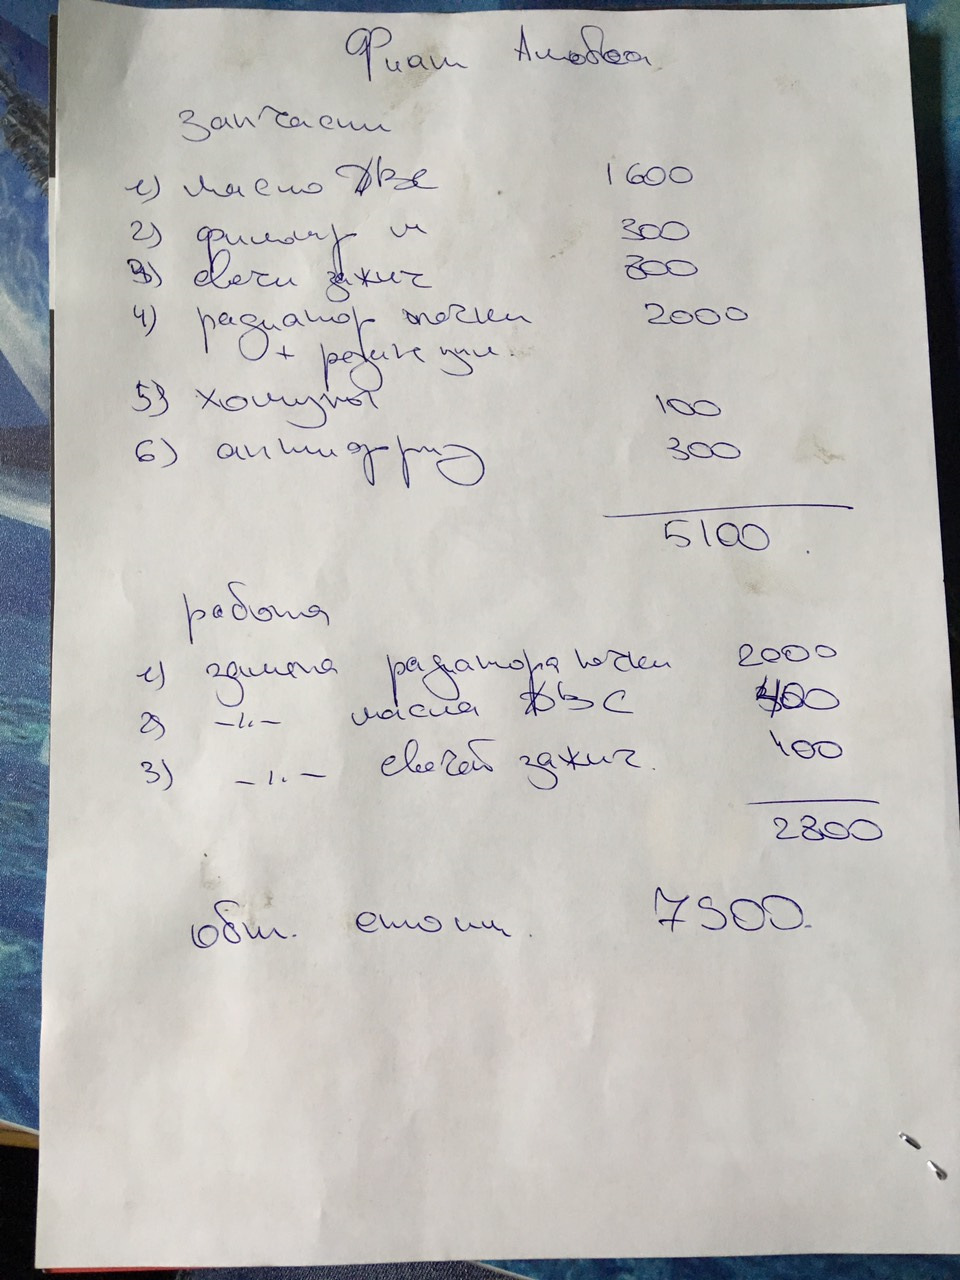 Фиат Альбеа
Запчасти
1) масло ДВС 1600
2) фильтр м 300
3) свечи зажиг 800
4) радиатор печки 2000
+ резин
5) хомуты 100
6) антифриз 300
5100
работа
1) замена радиатора печки 2000
2) -〃- масла ДВС 400
3) -〃- свечей зажиг. 400
2800
общ. стоим. 7900